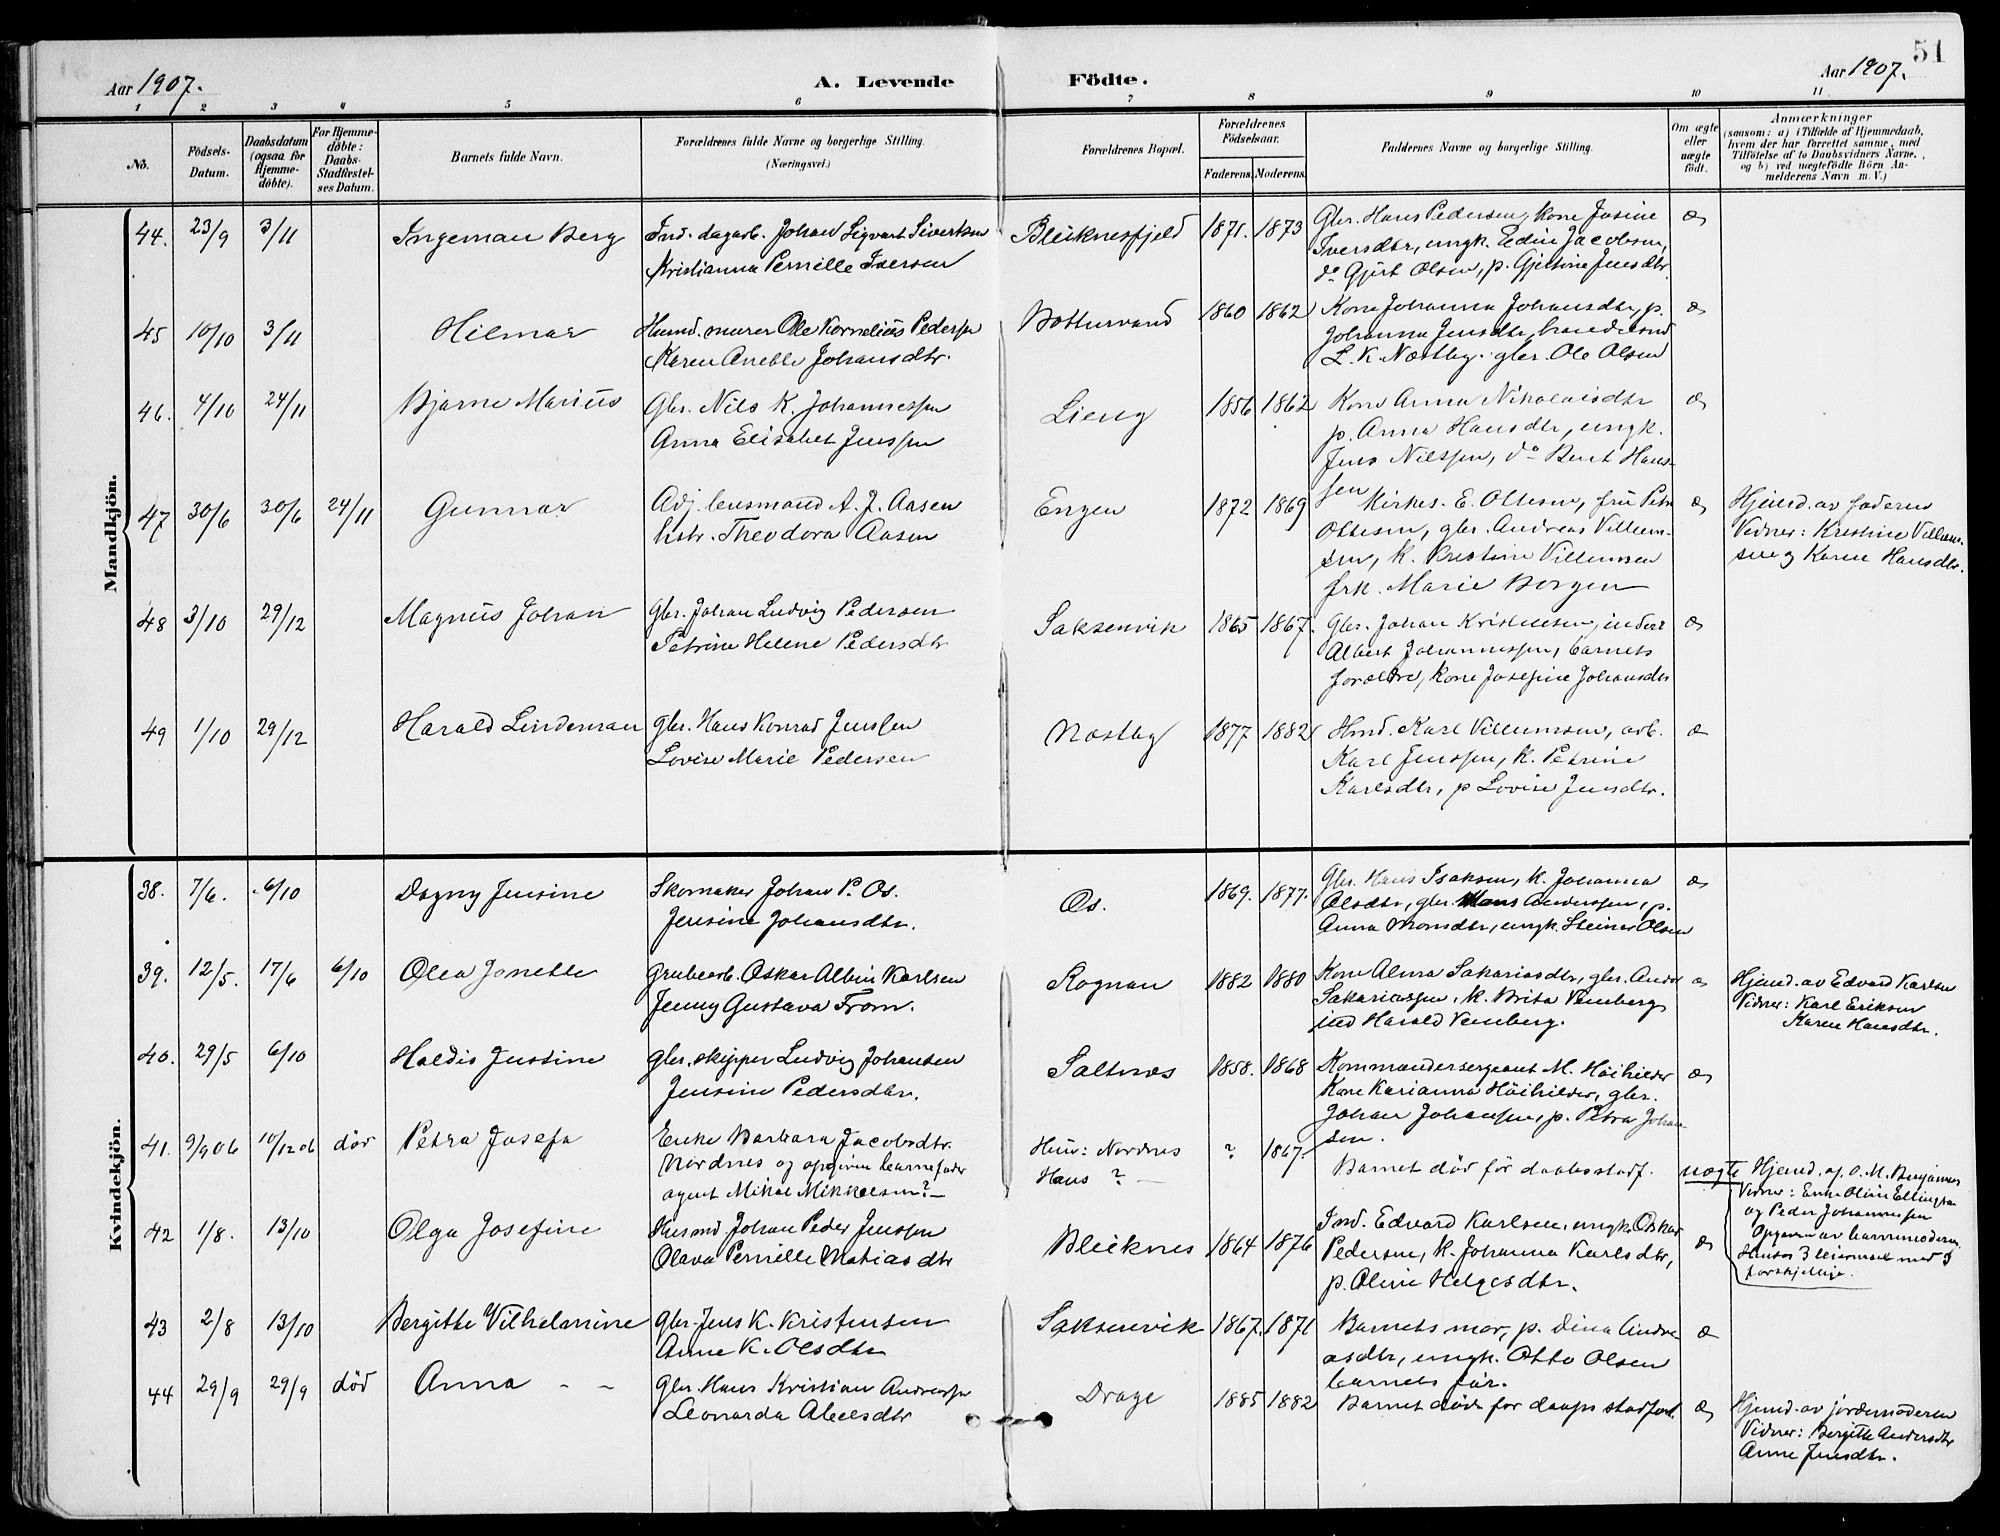 51
Aar 1907.
A. Levende Födte.
Aar 1907.
1 2 3 4 5 6 7 8 9 10 11
No.
Födsels-Datum.
Daabsdatum (ogsaa for Hjemmedöbte).
For Hjemmedöbte: Daabs-Stadfæstelses Datum.
Barnets fulde Navn.
Forældrenes fulde Navne og borgerlige Stilling.
(Næringsvei.)
Forældrenes Bopæl.
Forældrenes Födselsaar.
Faderens. Moderens.
Faddernes Navne og borgerlige Stilling.
Om ægte eller uægte födt.
Anmærkninger
(saasom: a) i Tilfælde af Hjemmedaab,
hvem der har forrettet samme, med
Tilföielse af to Daabsvidners Navne,
og b) ved uægtefödte Börn An-
melderens Navn m. V.)
Mandkjön.
44. 23/9 3/11 Ingeman Berg Ind. dagarb. Johan Sigvart Sivertsen Bleiknesfjeld 1871. 1873 Gbr. Hans Pedersen, kone Josine æ
Kristianna Pernille Iversen Iversdtr, ungk. Edin Jacobsen,
do Gjert Olsen, p. Gjertine Jensdtr.
45 10/10 3/11 Hilmar Husmd. murer Ole Kornelius Pedersen Botnvand 1860 1862 Kone Johanna Johansdtr, p. æ
Karen Anette Johansdtr. Johanna Jensdtr,
L. K. Næstby. gbr. Ole Olsen
46. 4/10 24/11 Bjarne Marius Gbr. Nils K. Johannessen Lieng 1856 1862 Kone Anna Nikolaisdtr æ
Anna Elisabet Jenssen p. Anna Hansdtr, ungk.
Jens Nilssen, do Bent Hans-
sen
47 30/6 30/6 24/11 Gunnar Adj. lensmand A. J. Aasen Engen 1872 1869 Kirkes. E. Ottesen, fru Petra æ Hjemd. av faderen
hstr. Theodora Aasen Ottesen, gbr. Andreas Villum- Vidner: Kristine Villum-
sen, k. Kristine Villumsen sen og Karen Hansdtr.
frk. Marie Borgen
48 3/10 29/12 Magnus Johan Gbr. Johan Ludvig Pedersen Saksenvik 1865 1867. Gbr. Johan Kristensen, inderst æ
Petrine Helene Pedersdtr Albert Johannessen, barnets
forældre, kone Josefine Johansdtr
49 1/10 29/12 Harald Lindeman Gbr. Hans Konrad Jenssen Næstby 1877 1882 Hmd. Karl Villumsen, arb. æ
Lovise Marie Pedersen Karl Jenssen, k. Petrine
Karlsdtr, p Lovise Jensdtr.
Kvindekjön.
38. 7/6. 6/10 Dagny Jensine Skomaker Johan P. Os. Os. 1869. 1877. Gbr. Hans Isaksen, k. Johanna æ
Jensine Johansdtr. Olsdtr, gbr. Hans Anderssen, p.
Anna Monsdtr, ungk. Steiner Olsen
39. 12/5. 17/6 6/10 Olea Jonette Grubearb. Oskar Albin Karlsen Rognan 1882 1880 Kone Alma Sakariasdtr, gbr. Andr æ Hjemd. av Edvard Karlsen
Jenny Gustava From. Sakariassen, k. Brita Venberg Vidner: Karl Eriksen
ind Harald Venberg. Karen Hansdtr.
40. 29/5 6/10 Haldis Justine gbr. skipper Ludvig Johansen Saltnes 1858. 1868 Kommandersergeant M. Höihilder æ
Jensine Pedersdtr. Kone Karianna Höihilder, gbr.
Johan Johansen, p. Petra Johan
sen.
41. 9/9 06 10/12 06 död Petra Josefa Enke Barbara Jacobsdtr. Hun: Nordnes ? 1867. Barnet död för daabsstadf. uægte Hjemd. af O. M. Benjaminsen
Nordnes og opgiven barnefader Hans ? — Vidner: Enke Oline Ellingsen
agent Mikal Mikkelsen? — og Peder Johannessen
Opgiven av barnemoderen
Hendes 3 leiermaal med 3
forskjellige.
42 1/8. 13/10 Olga Josefine Husmd. Johan Peder Jenssen Bleiknes 1864 1876 Ind. Edvard Karlsen, ungk. Oskar æ
Olava Pernille Matiasdtr Pedersen, k. Johanna Karlsdtr,
p. Oline Helgesdtr.
43 2/8 13/10 Bergitte Vilhelmine Gbr. Jens K. Kristensen Saksenvik 1867. 1871 Barnets mor, p. Dina Andre æ
Anne K. Olsdtr asdtr, ungk. Otto Olsen
barnets far.
44 29/9 29/9 död Anna - - Gbr. Hans Kristian Andreassen Drage 1885 1882 Barnet död för daaps stadfest. æ Hjemd. av jordemoderen
Leonarda Abelsdtr Vidner: Bergitte Andersdtr
Anne Jensdtr.